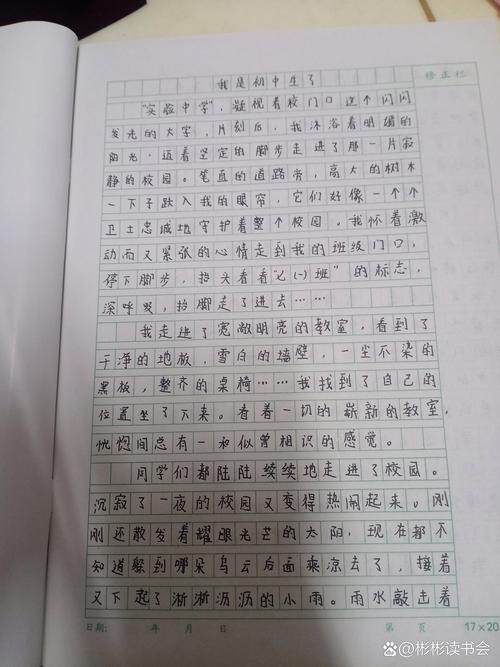 我是初中生了
修正栏
"实验中学"，凝视着校门口这个闪闪
发光的大字，片刻后，我沐浴着明媚的
阳光，迈着坚定的脚步走进了那一片寂
静的校园。笔直的道路旁，高大的树木
一下子跃入我的眼帘，它们好像一个个
卫士忠诚地守护着整个校园。我怀着激
动而又紧张的心情走到我的班级门口，
停下脚步，抬头看看"七(一)班"的标志，
深呼吸，抬脚走了进去……
我走进了宽敞明亮的教室，看到了
干净的地板，雪白的墙壁，一尘不染的
黑板，整齐的桌椅……我找到了自己的
位置坐了下来。看着一切的崭新的教室，
恍惚间总有一种似曾相识的感觉。
同学们都陆陆续续地走进了校园。
沉寂了一夜的校园又变得热闹起来。刚
刚还散发着耀眼光芒的太阳，现在都不
知道躲到哪朵乌云后面乘凉去了，接着
又下起了淅淅沥沥的小雨。雨水敲击着
日期: 年 月 日 第 页 17×20
@彬彬读书会